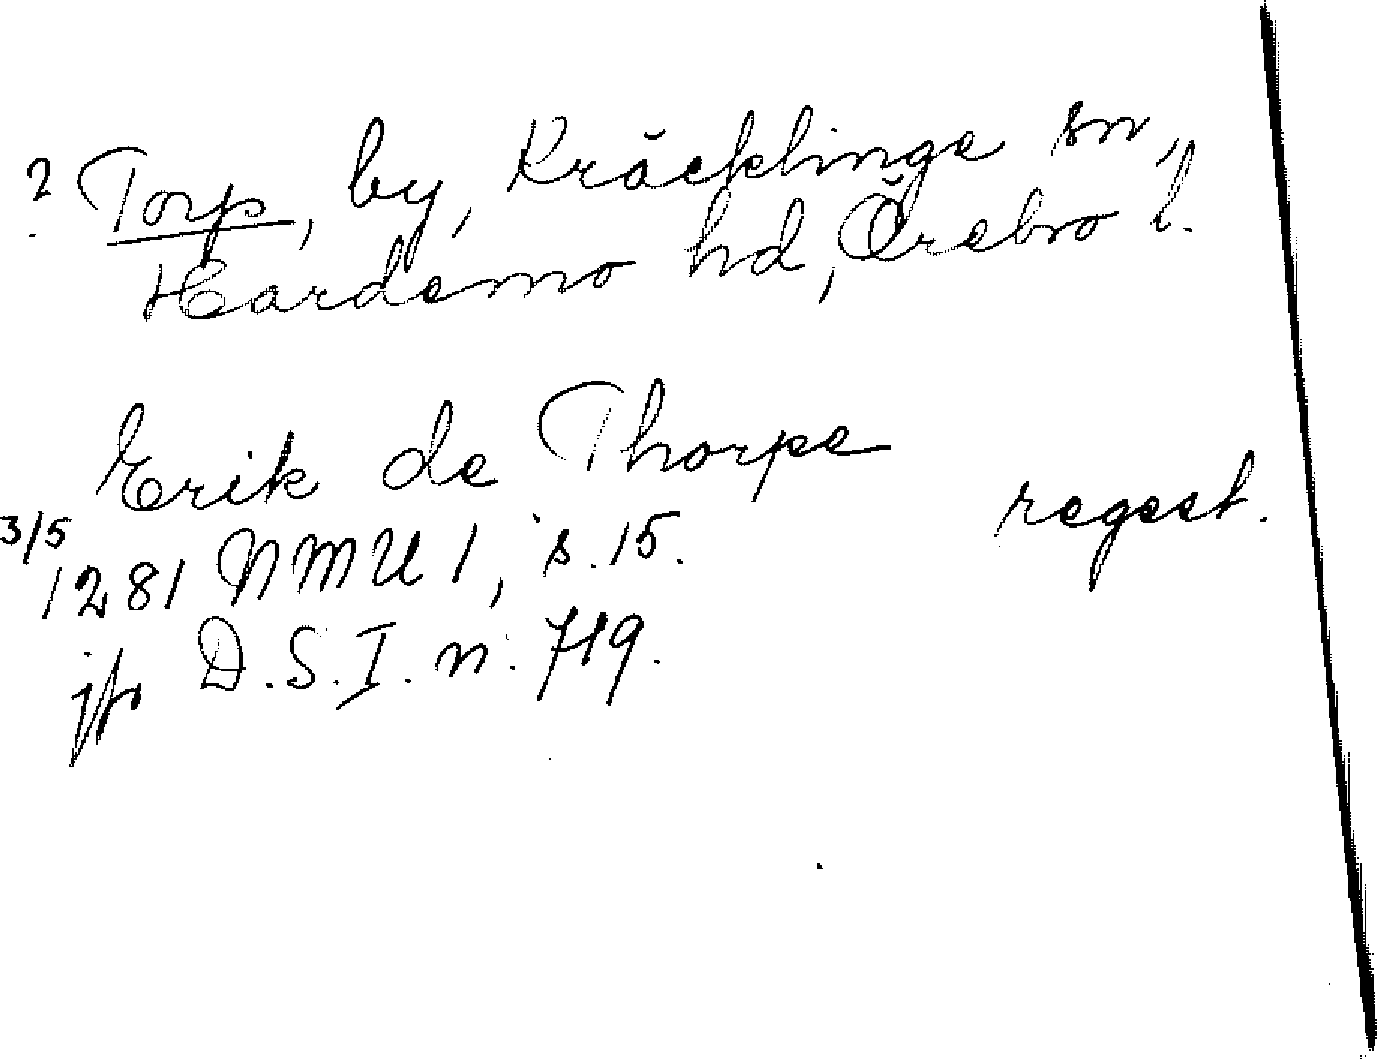 ? Torp, by, Kräcklinge sn,
Hardemo hd, Örebro l.
Erik de Thorpe
regest.
3/5
1281 NMU 1, s. 15.
jfr D.S.I. n. 719.